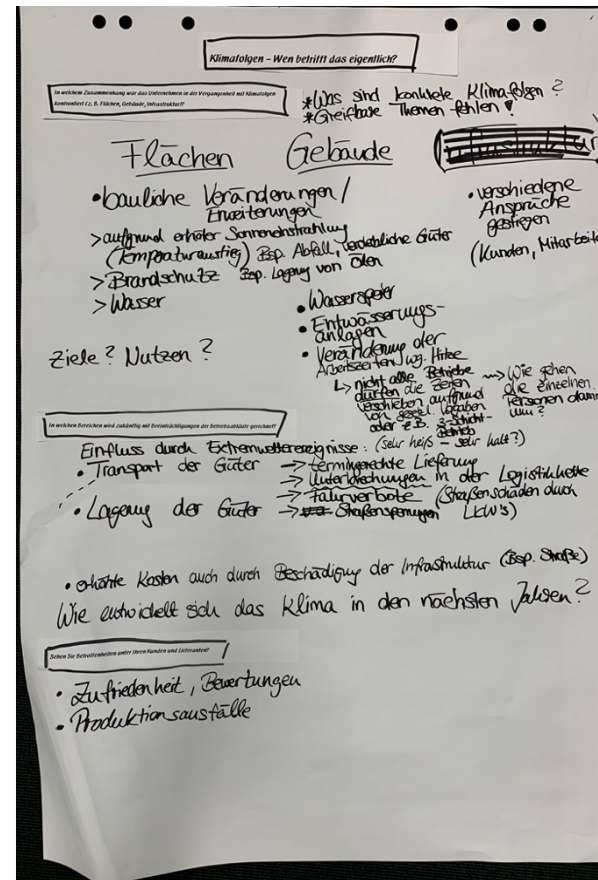 Klimafolgen – Wen betrifft das eigentlich?
In welchem Zusammenhang war das Unternehmen in der Vergangenheit mit Klimafolgen
konfrontiert (z. B. Flächen, Gebäude, Infrastruktur)?
*Was sind konkrete Klimafolgen?
*Greifbare Themen fehlen!
Flächen Gebäude
• bauliche Veränderungen /
Erweiterungen
> aufgrund erhöter Sonneneinstrahlung
(Temperaturanstieg) Bsp. Abfall, verderbliche Güter
> Brandschutz Bsp. Lagerung von Ölen
> Wasser
• verschiedene
Ansprüche
gestiegen
(Kunden, Mitarbeite
Ziele? Nutzen?
• Wasserspeier
• Entwässerungs-
anlagen
• Veränderung der
Arbeitszeiten wg. Hitze
↳ nicht alle Betriebe
dürfen die Zeiten
verschieben aufgrund
von gesetzl. Vorgaben
oder z.B. 3-Schicht-
Betrieb
Wie gehen
die einzelnen
Personen dam
um?
In welchen Bereichen wird zukünftig mit Beeinträchtigungen der Betriebsabläufe gerechnet?
Einfluss durch Extremwetterereignisse: (sehr heiß – sehr kalt?)
• Transport der Güter → termingerechte Lieferung
→ Unterbrechungen in der Logistikkette
→ Fahrverbote (Straßenschäden durch
LKW's)
• Lagerung der Güter → Straßensperrungen
• erhöhte Kosten auch durch Beschädigung der Infrastruktur (Bsp. Straße)
Wie entwickelt sich das Klima in den nächsten Jahren?
Sehen Sie Betroffenheiten unter Ihren Kunden und Lieferanten?
• Zufriedenheit, Bewertungen
• Produktionsausfälle